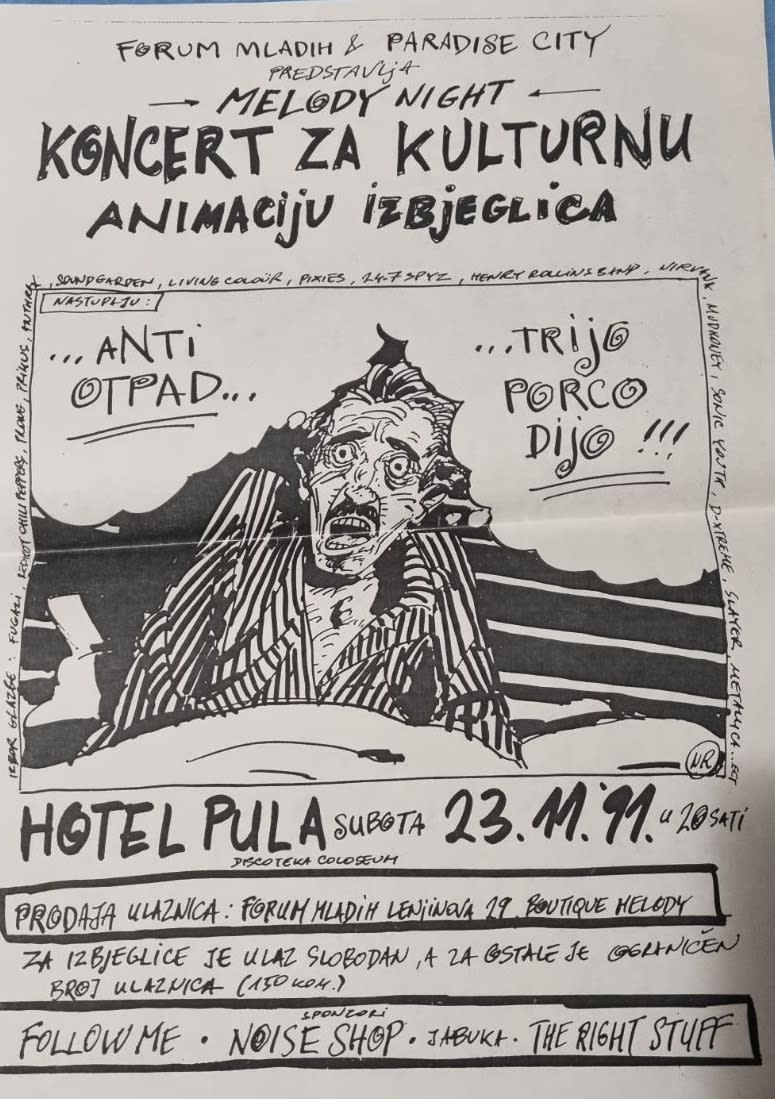 FORUM MLADIH & PARADISE CITY
PREDSTAVLJA
MELODY NIGHT
KONCERT ZA KULTURNU
ANIMACIJU IZBJEGLICA
IZBOR GLAZBE: FUGAZI, RED HOT CHILI PEPPERS, PRIMUS, ANTHRAX
, SOUNDGARDEN, LIVING COLOUR, PIXIES, 24-7 SPYZ, HENRY ROLLINS BAND, NIRVANA
, MUDHONEY, SONIC YOUTH, D-XTREME, SLAYER, METALLICA...ECT
NASTUPAJU:
...ANTI
OTPAD...
...TRIJO
PORCO
DIJO !!!
NR
HOTEL PULA SUBOTA 23.11.'91. u 20 SATI
DISCOTEKA COLOSEUM
PRODAJA ULAZNICA: FORUM MLADIH LENJINOVA 29. BOUTIQUE MELODY
ZA IZBJEGLICE JE ULAZ SLOBODAN, A ZA OSTALE JE OGRANIČEN
BROJ ULAZNICA (150 KOM.)
SPONZORI
FOLLOW ME · NOISE SHOP · JABUKA · THE RIGHT STUFF